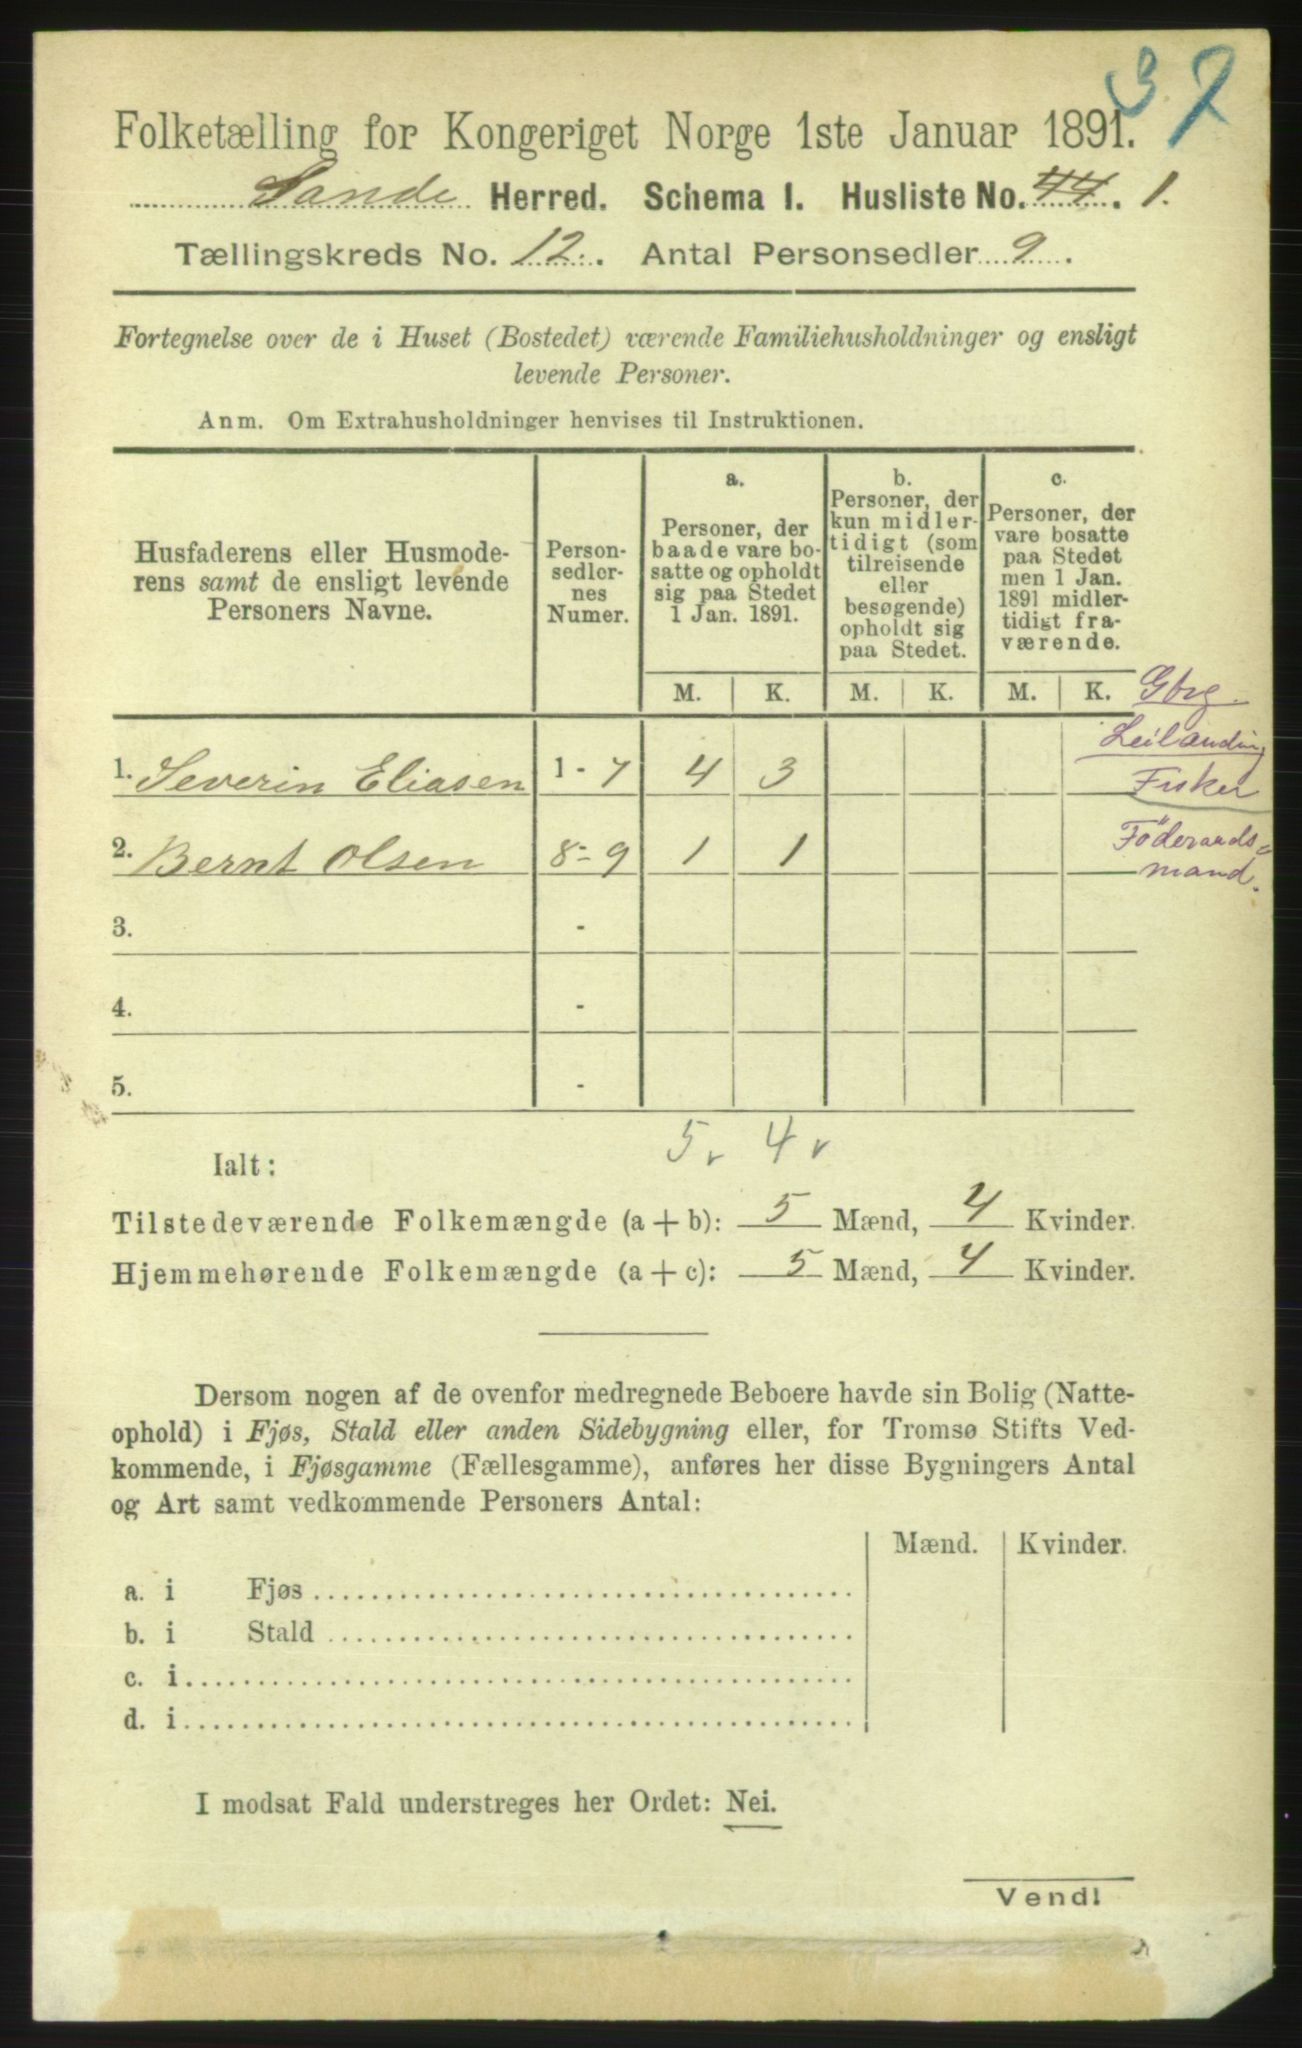 37
Folketælling for Kongeriget Norge 1ste Januar 1891.
Sande Herred. Schema I. Husliste No. 44. 1.
Tællingskreds No. 12. Antal Personsedler 9.
Fortegnelse over de i Huset (Bostedet) værende Familiehusholdninger og ensligt
levende Personer.
Anm. Om Extrahusholdninger henvises til Instruktionen.
Husfaderens eller Husmode-
rens samt de ensligt levende
Personers Navne.
Person-
sedler-
nes
Numer.
a.
Personer, der
baade vare bo-
satte og opholdt
sig paa Stedet
1 Jan. 1891.
b.
Personer, der
kun midler-
tidigt (som
tilreisende
eller
besøgende)
opholdt sig
paa Stedet.
c.
Personer, der
vare bosatte
paa Stedet
men 1 Jan.
1891 midler-
tidigt fra-
værende.
M. K. M. K. M. K. Gbrg.
Leilænding
1. Severin Eliasen 1 - 7 4 3 Fisker
2. Bernt Olsen 8 - 9 1 1 Föderaads=
mand.
3. -
4. -
5. -
5 4
Ialt:
Tilstedeværende Folkemængde (a + b): 5 Mænd, 4 Kvinder.
Hjemmehørende Folkemængde (a + c): 5 Mænd, 4 Kvinder.
Dersom nogen af de ovenfor medregnede Beboere havde sin Bolig (Natte-
ophold) i Fjøs, Stald eller anden Sidebygning eller, for Tromsø Stifts Ved-
kommende, i Fjøsgamme (Fællesgamme), anføres her disse Bygningers Antal
og Art samt vedkommende Personers Antal:
Mænd. Kvinder.
a. i Fjøs
b. i Stald
c. i
d. i
I modsat Fald understreges her Ordet: Nei.
Vend!